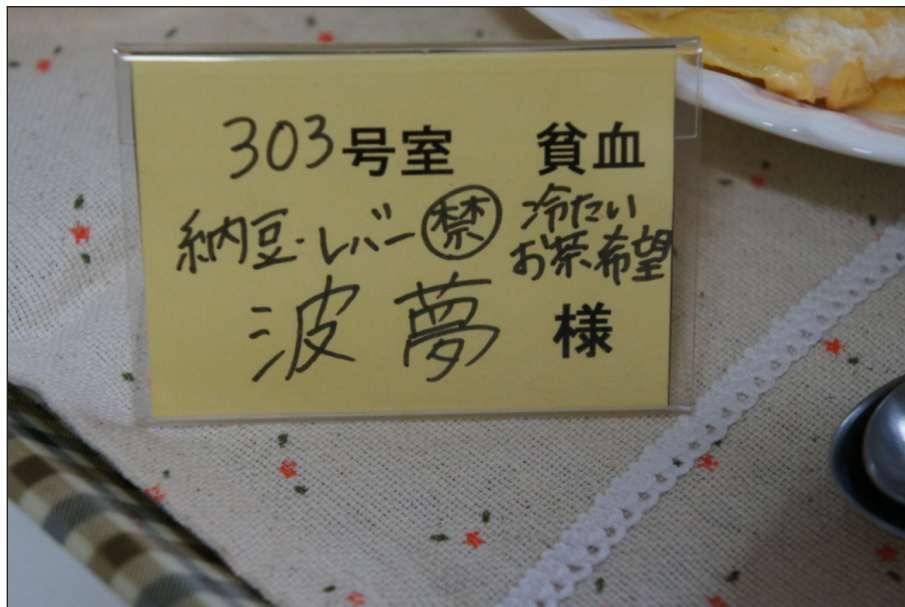 303号室 貧血
納豆・レバー禁 冷たい
お茶希望
波夢 様